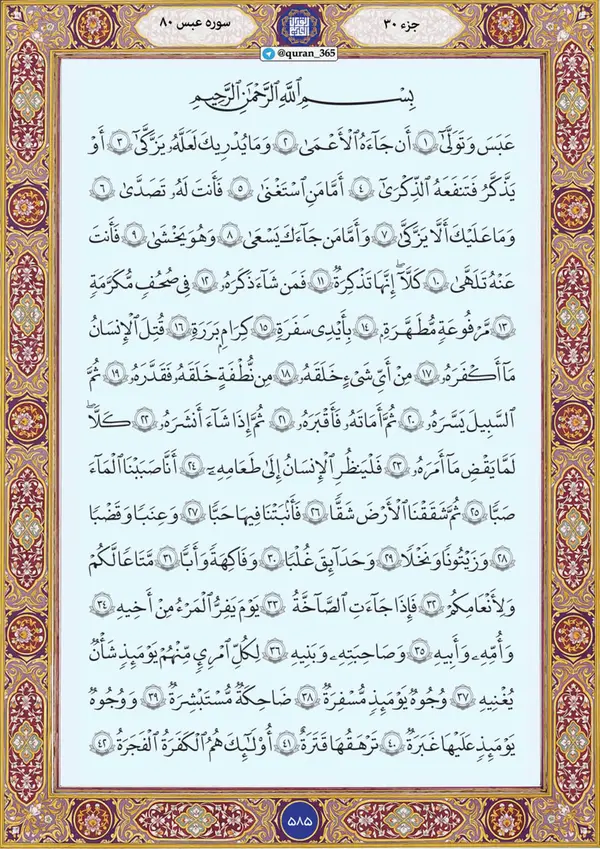 جزء ۳۰
سوره عبس ۸۰
@quran_365
بِسْمِ ٱللَّهِ ٱلرَّحْمَٰنِ ٱلرَّحِيمِ
عَبَسَ وَتَوَلَّىٰٓ ۝١ أَن جَآءَهُ ٱلْأَعْمَىٰ ۝٢ وَمَا يُدْرِيكَ لَعَلَّهُۥ يَزَّكَّىٰٓ ۝٣ أَوْ
يَذَّكَّرُ فَتَنفَعَهُ ٱلذِّكْرَىٰٓ ۝٤ أَمَّا مَنِ ٱسْتَغْنَىٰ ۝٥ فَأَنتَ لَهُۥ تَصَدَّىٰ ۝٦
وَمَا عَلَيْكَ أَلَّا يَزَّكَّىٰ ۝٧ وَأَمَّا مَن جَآءَكَ يَسْعَىٰ ۝٨ وَهُوَ يَخْشَىٰ ۝٩ فَأَنتَ
عَنْهُ تَلَهَّىٰ ۝١٠ كَلَّآ إِنَّهَا تَذْكِرَةٌ ۝١١ فَمَن شَآءَ ذَكَرَهُۥ ۝١٢ فِى صُحُفٍ مُّكَرَّمَةٍ
۝١٣ مَّرْفُوعَةٍ مُّطَهَّرَةٍۭ ۝١٤ بِأَيْدِى سَفَرَةٍ ۝١٥ كِرَامٍۭ بَرَرَةٍ ۝١٦ قُتِلَ ٱلْإِنسَٰنُ
مَآ أَكْفَرَهُۥ ۝١٧ مِنْ أَىِّ شَىْءٍ خَلَقَهُۥ ۝١٨ مِن نُّطْفَةٍ خَلَقَهُۥ فَقَدَّرَهُۥ ۝١٩ ثُمَّ
ٱلسَّبِيلَ يَسَّرَهُۥ ۝٢٠ ثُمَّ أَمَاتَهُۥ فَأَقْبَرَهُۥ ۝٢١ ثُمَّ إِذَا شَآءَ أَنشَرَهُۥ ۝٢٢ كَلَّا
لَمَّا يَقْضِ مَآ أَمَرَهُۥ ۝٢٣ فَلْيَنظُرِ ٱلْإِنسَٰنُ إِلَىٰ طَعَامِهِۦٓ ۝٢٤ أَنَّا صَبَبْنَا ٱلْمَآءَ
صَبًّا ۝٢٥ ثُمَّ شَقَقْنَا ٱلْأَرْضَ شَقًّا ۝٢٦ فَأَنۢبَتْنَا فِيهَا حَبًّا ۝٢٧ وَعِنَبًا وَقَضْبًا
۝٢٨ وَزَيْتُونًا وَنَخْلًا ۝٢٩ وَحَدَآئِقَ غُلْبًا ۝٣٠ وَفَٰكِهَةً وَأَبًّا ۝٣١ مَّتَٰعًا لَّكُمْ
وَلِأَنْعَٰمِكُمْ ۝٣٢ فَإِذَا جَآءَتِ ٱلصَّآخَّةُ ۝٣٣ يَوْمَ يَفِرُّ ٱلْمَرْءُ مِنْ أَخِيهِ ۝٣٤
وَأُمِّهِۦ وَأَبِيهِ ۝٣٥ وَصَٰحِبَتِهِۦ وَبَنِيهِ ۝٣٦ لِكُلِّ ٱمْرِئٍ مِّنْهُمْ يَوْمَئِذٍ شَأْنٌ
يُغْنِيهِ ۝٣٧ وُجُوهٌ يَوْمَئِذٍ مُّسْفِرَةٌ ۝٣٨ ضَاحِكَةٌ مُّسْتَبْشِرَةٌ ۝٣٩ وَوُجُوهٌ
يَوْمَئِذٍ عَلَيْهَا غَبَرَةٌ ۝٤٠ تَرْهَقُهَا قَتَرَةٌ ۝٤١ أُو۟لَٰٓئِكَ هُمُ ٱلْكَفَرَةُ ٱلْفَجَرَةُ ۝٤٢
۵۸۵